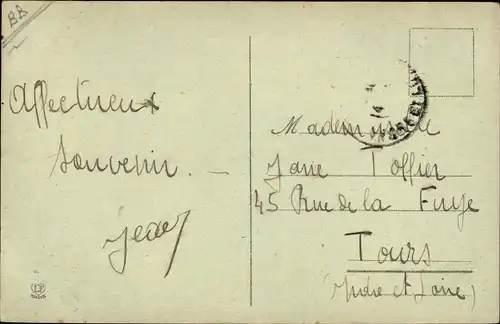 BB
Affectueux
Souvenir
Jean
Mademoiselle
Jane Toffier
45 Rue de la Fuye
Tours
(Indre et Loire)